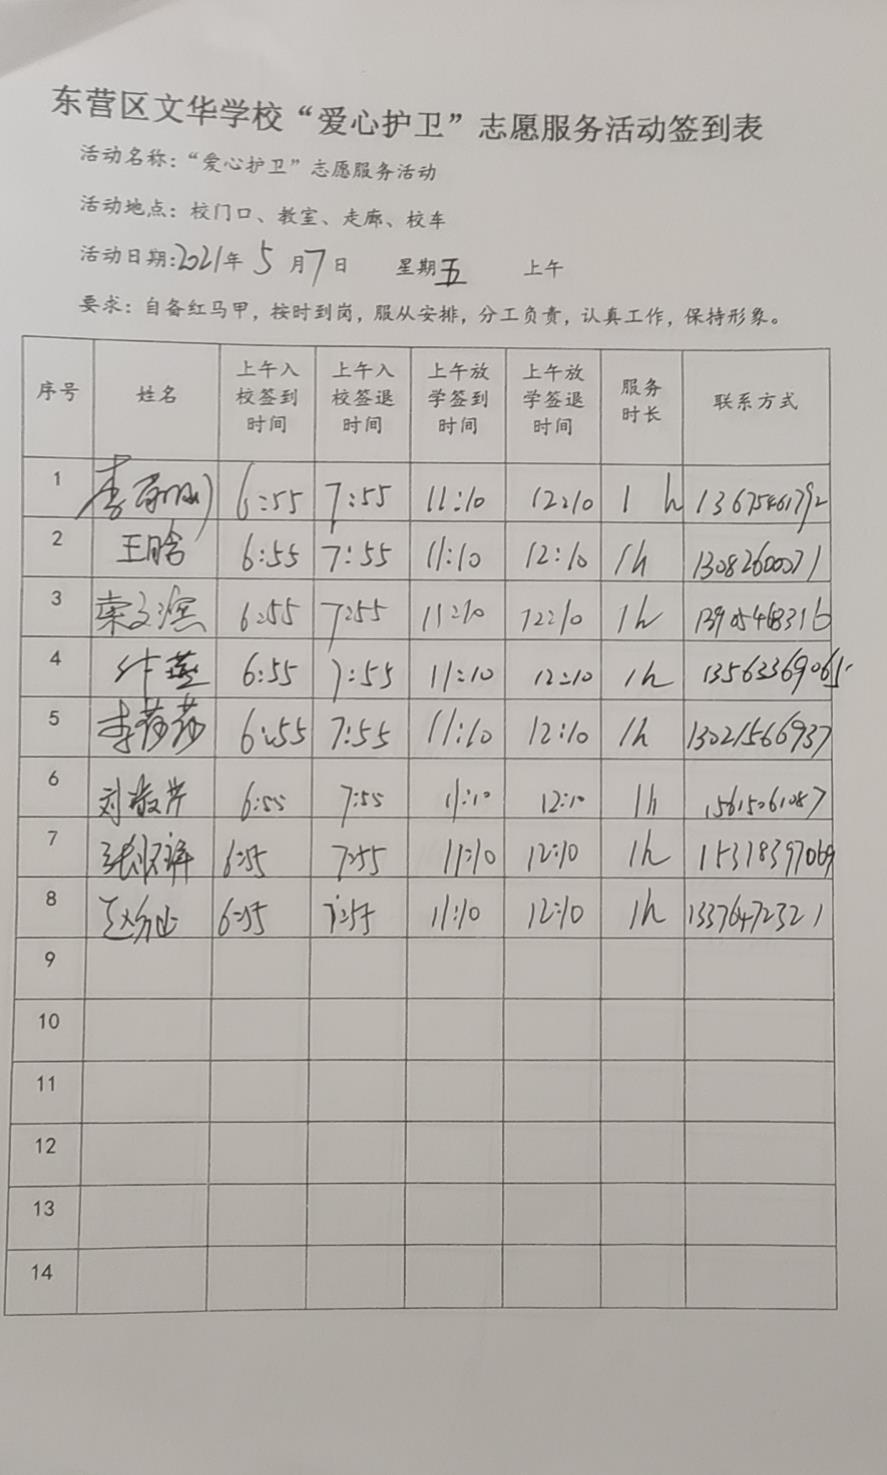 东营区文华学校“爱心护卫”志愿服务活动签到表
活动名称：“爱心护卫”志愿服务活动
活动地点：校门口、教室、走廊、校车
活动日期：2021年 5 月 7 日 星期五 上午
要求：自备红马甲，按时到岗，服从安排，分工负责，认真工作，保持形象。
序号 姓名 上午入校签到时间 上午入校签退时间 上午放学签到时间 上午放学签退时间 服务时长 联系方式
1 李 6:55 7:55 11:10 12:10 1 h 13675461792
2 王晗 6:55 7:55 11:10 12:10 1h 13082600071
3 6:55 7:55 11:10 12:10 1h 13905468316
4 燕 6:55 7:55 11:10 12:10 1h
5 李莎莎 6:55 7:55 11:10 12:10 1h 13021566937
6 刘 芹 6:55 7:55 11:10 12:10 1h 15615061087
7 6:55 7:55 11:10 12:10 1h 15318397069
8 6:55 7:55 11:10 12:10 1h 13376472321
9
10
11
12
13
14